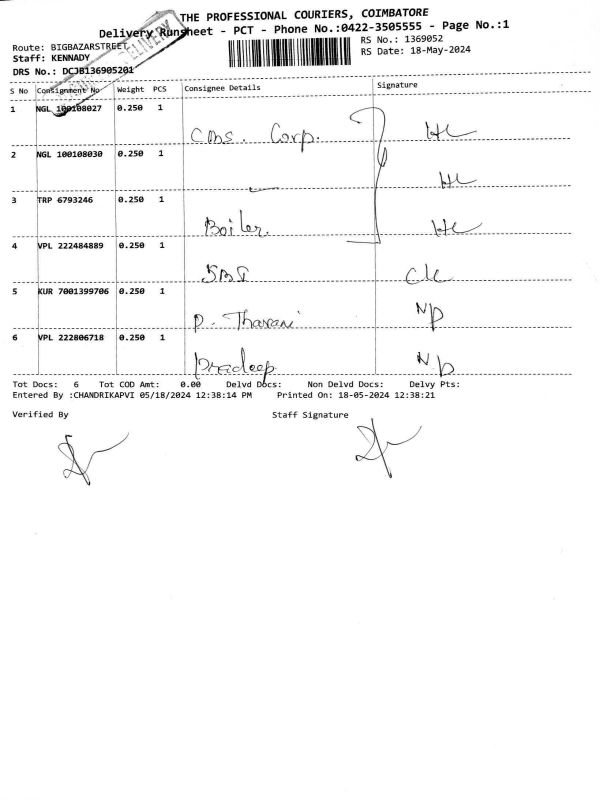 THE PROFESSIONAL COURIERS, COIMBATORE
Delivery Runsheet - PCT - Phone No.:0422-3505555 - Page No.:1
Route: BIGBAZARSTREET
RS No.: 1369052
Staff: KENNADY
RS Date: 18-May-2024
DRS No.: DCJB136905201
DELIVERY
S No Consignment No Weight PCS Consignee Details Signature
1 NGL 100108027 0.250 1
Corp.
2 NGL 100108030 0.250 1
3 TRP 6793246 0.250 1
Boiler.
4 VPL 222484889 0.250 1
SBI
5 KUR 7001399706 0.250 1
P. Tharani NP
6 VPL 222806718 0.250 1
Pradeep NP
Tot Docs: 6 Tot COD Amt: 0.00 Delvd Docs: Non Delvd Docs: Delvy Pts:
Entered By :CHANDRIKAPVI 05/18/2024 12:38:14 PM Printed On: 18-05-2024 12:38:21
Verified By Staff Signature